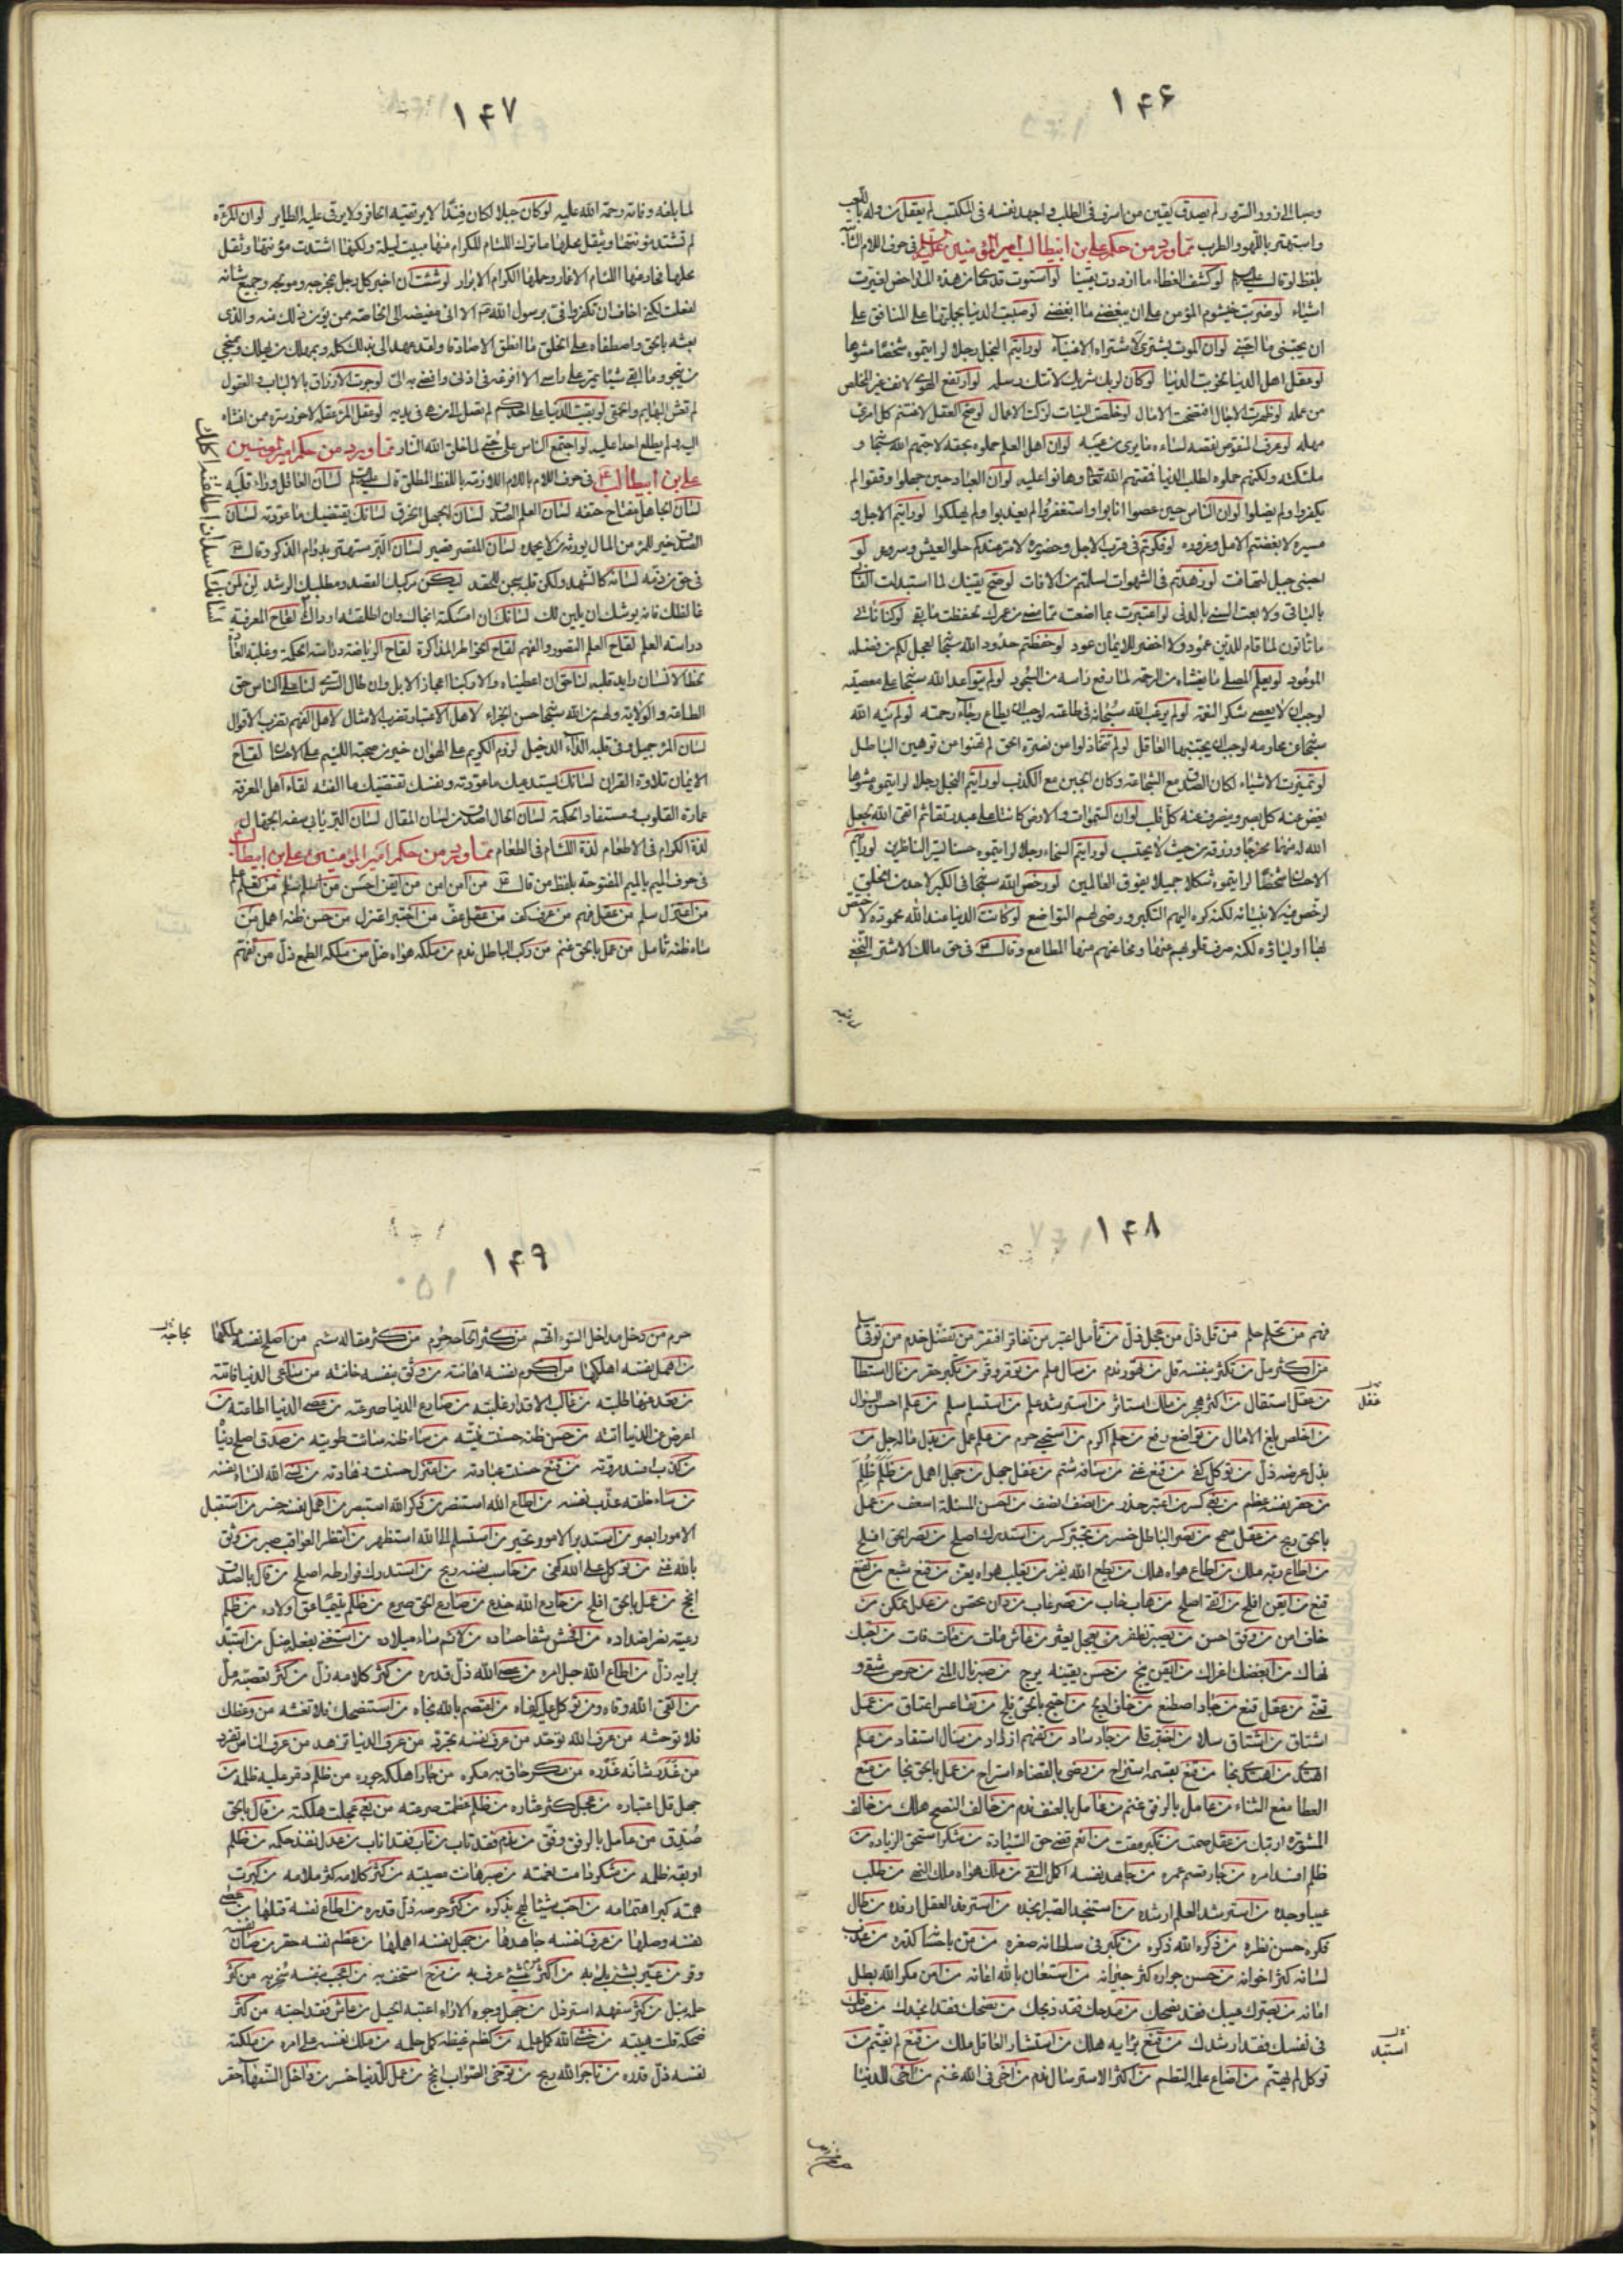 ۱۴۶
لم يصدق يقين من اسرف فى الطلب و اجهد نفسه فى المكتسب لم يعقل من وله باللعب
واستهتر باللهو والطرب مما ورد من حكم على بن ابيطالب امير المؤمنين فى حرف اللام
بلفظ لو قال لو كشف الغطاء ما ازددت يقينا لو استوت قدماى من هذه المداحض لغيرت
اشياء لو ضربت خيشوم المؤمن على ان يبغضنى ما ابغضنى لو صببت الدنيا على المنافق على
ان يحبنى ما احبنى لو ان الموت يشترى لاشتراه الاغنياء لو رايتم البخل رجلا لرايتموه شخصا مشوها
لو عقل اهل الدنيا لخربت الدنيا لو كان لربك شريك لاتتك رسله لو ارتفع الهوى لانف غير المخلص
من عمله لو ظهرت الاجال افتضحت الامال لو خلصت النيات لزكت الاعمال لو صح العقل لاغتنم كل امرئ
مهله لو عرف المنقوص نقصه لساءه ما يرى من عيبه لو ان اهل العلم حملوه بحقه لاحبهم الله و
ملئكته ولكنهم حملوه لطلب الدنيا فمقتهم الله وهانوا عليه لو ان العباد حين جهلوا وقفوا لم
يكفروا ولم يضلوا لو ان الناس حين عصوا انابوا واستغفروا لم يعذبوا ولم يهلكوا لو رايتم الاجل و
مسيره لابغضتم الامل وغروره لو فكرتم فى قرب الاجل وحضوره لامر عندكم حلو العيش وسروره لو
احبنى جبل لتهافت لو زهدتم فى الشهوات لسلمتم من الافات لو صح يقينك لما استبدلت الفانى
بالباقى ولا بعت السنى بالدنى لو اعتبرت بما اضعت من ماضى عمرك لحفظت ما بقى لو كنا ناتى
ما تاتون لما قام للدين عمود ولا اخضر للايمان عود لو حفظتم حدود الله لعجل لكم من فضله
الموعود لو يعلم المصلى ما يغشاه من الرحمة لما رفع راسه من السجود لو لم يتواعد الله على معصيته
لوجب ان لا يعصى شكر النعمه لو لم يرغب الله سبحانه فى طاعته لوجب ان يطاع رجاء رحمته لو لم ينه الله
عن محارمه لوجب ان يجتنبها العاقل لو لم تتخاذلوا عن نصرة الحق لم تهنوا عن توهين الباطل
لو تميزت الاشياء لكان الصدق مع الشجاعة وكان الجبن مع الكذب لو رايتم البخل رجلا لرايتموه مشوها
يغض عنه كل بصر وينصرف عنه كل قلب لو ان السموات والارض كانتا على عبد رتقا ثم اتقى الله لجعل
الله له منهما مخرجا ورزقه من حيث لا يحتسب لو رايتم السخاء رجلا لرايتموه حسنا يسر الناظرين لو رايتم
الاحسان شخصا لرايتموه شكلا جميلا يفوق العالمين لو رخص الله فى الكبر لاحد من الخلق
لرخص فيه لانبيائه لكنه كره اليهم التكبر ورضى لهم التواضع لو كانت الدنيا عند الله محموده لاختص
بها اولياؤه لكنه صرف قلوبهم عنها ومحا عنهم منها المطامع وقال فى حق مالك الاشتر النخعى
۱۴۷
لما بلغه وفاته رحمة الله عليه لو كان جبلا لكان فندا لا يرتقيه الحافر ولا يرقى عليه الطاير لو ان المروة
لم تشتد مؤنتها ويثقل محملها ما ترك اللئام للكرام منها مبيت ليلة ولكنها اشتدت مؤنتها وثقل
محملها فحاد عنها اللئام الاغمار وحملها الكرام الابرار لو شئت ان اخبر كل رجل بمخرجه ومولجه وجميع شانه
لفعلت لكنى اخاف ان تكفروا فى برسول الله الا انى مفيضه الى الخاصة ممن يؤمن ذلك منه والذى
بعثه بالحق واصطفاه على الخلق ما انطق الا صادقا ولقد عهد الى بذلك كله وبمهلك من يهلك ومنجى
من ينجو وما ابقى شيئا يمر على راسى الا افرغه فى اذنى وافضى به الى لو جرت الارزاق بالالباب والعقول
لم تعش البهايم والحمقى لو بقيت الدنيا على احدكم لم تصل الى من هى فى يديه لو عقل المرء عقله لاحرز سره ممن افشاه
اليه ولم يطلع احدا عليه لو اجتمع الناس على حب على لما خلق الله النار مما ورد من حكم امير المؤمنين
على بن ابيطالب فى حرف اللام باللام الزائدة باللفظ المطلق قال لسان العاقل وراء قلبه
لسان الجاهل مفتاح حتفه لسان العلم الصدق لسان الجهل الخرق لسانك يقتضيك ما عودته لسان
الصدق خير للمرء من المال يورثه من لا يحمده لسان المقصر قصير لسان البر مستهتر بدوام الذكر وقال
فى حق من ذمه لسانه كالشهد ولكن قلبه سجن للحقد ليكن مركبك القصد ومطلبك الرشد لن لمن
غالظك فانه يوشك ان يلين لك لسانك ان امسكته انجاك وان اطلقته ارداك لقاح المعرفة
دراسة العلم لقاح العلم التصور والفهم لقاح الخواطر المذاكرة لقاح الرياضة دراسة الحكمة وغلبة العادة
لحظ الانسان رايد قلبه لنا حق ان اعطيناه والا ركبنا اعجاز الابل وان طال السرى لنا على الناس حق
الطاعة والولاية ولهم من الله حسن الجزاء لاهل الاعتبار تضرب الامثال لاهل الفهم تضرب الاقوال
لسان المرائى جميل وفى قلبه الداء الدخيل لزوم الكريم على الهوان خير من صحبة اللئيم على الاحسان لقاح
الايمان تلاوة القران لسانك يستدعيك ما عودته ونفسك تقتضيك ما الفته لقاء اهل المعرفة
عمارة القلوب ومستفاد الحكمة لسان الحال اصدق من لسان المقال لسان البر يابى سفه الجهال
لذة الكرام فى الاطعام لذة اللئام فى الطعام مما ورد من حكم امير المؤمنين على بن ابيطالب
فى حرف الميم بالميم المفتوحة بلفظ من قال من امن امن من ايقن احسن من اسلم سلم من تعلم علم
من اعتزل سلم من عقل فهم من عرف كف من عقل عف من اختبر اعتزل من حسن ظنه اهمل من
ساء ظنه تامل من عمل بالحق غنم من ركب الباطل ندم من ملكه هواه ضل من ملكه الطمع ذل من تفهم
۱۴۸
فهم من تحلم حلم من قل ذل من عجل زل من تامل اعتبر من تفاقر افتقر من تفضل خدم من توقى سلم
من اكثر مل من تكثر بنفسه قل من تهور ندم من سال علم من توقر وقر من تكبر حقر من نال استطال
من عقل استقال من اكثر هجر من ملك استاثر من استرشد علم من استسلم سلم من علم احسن السؤال
من اخلص بلغ الامال من تواضع رفع من حلم اكرم من استحيى حرم من علم عمل من بذل ماله جل من
بذل عرضه ذل من توكل كفى من قنع غنى من سافه شتم من عقل جهل من جهل اهمل من ظلم ظلم
من حقر نفسه عظم من بغى كسر من اعتبر حذر من انصف انصف من احسن المسئلة اسعف من عمل
بالحق ربح من عقل سمح من نصر الباطل خسر من تجبر كسر من استدرك اصلح من نصر الحق افلح
من اطاع ربه ملك من اطاع هواه هلك من يطع الله يفز من يغلب هواه يعز من قنع شبع من تقنع
قنع من ايقن افلح من اتقى اصلح من هاب خاب من قصر عاب من دان تحصن من عدل تمكن من
خاف امن من وفق احسن من يصبر يظفر من يعجل يعثر من عاش مات من مات فات من احبك
نهاك من ابغضك اغراك من ايقن ينج من حسن يقينه يرج من صبر نال المنى من حرص شقى و
تعنى من عقل قنع من جاد اصطنع من خاف ادلج من احتج بالحق فلج من تقاعس اعتاق من عمل
اشتاق من اشتاق سلا من اختبر قلى من جاد ساد من تفهم ازداد من سال استفاد من علم
اهتدى من اهتدى نجا من قنع بقسمه استراح من رضى بالقضاء استراح من عمل بالحق نجا من منع
العطا منع الثناء من عامل بالرفق غنم من عامل بالعنف ندم من خالف النصح هلك من خالف
المشورة ارتبك من عقل صمت من تكبر مقت من انعم قضى حق السيادة من شكر استحق الزياده من
ظلم افسد امره من جار قصم عمره من جاهد نفسه اكمل التقى من ملك هواه ملك النهى من طلب
عيبا وجده من استرشد العلم ارشده من استنجد الصبر انجده من استرفد العقل ارفده من طال
فكره حسن نظره من ذكر الله ذكره من تكبر فى سلطانه صغره من من باحسانه كدره من عذب
لسانه كثر اخوانه من حسن جواره كثر جيرانه من استعان بالله اعانه من امن مكر الله بطل
امانه من بصرك عيبك فقد نصحك من مدحك فقد ذبحك من نصحك فقد انجدك من صدقك
فى نفسك فقد ارشدك من قنع برايه هلك من استشار العاقل ملك من قنع لم يغتم من
توكل لم يهتم من اضاع علمه التطم من اكثر الاسترسال ندم من اخى فى الله غنم من اخى للدنيا
غفل
استبد
۱۴۹
حرم من دخل مداخل السوء اتهم من كثر الحاحه حرم من كثر مقاله سئم من اصلح نفسه ملكها
من اهمل نفسه اهلكها من اكرم نفسه اهانته من وثق بنفسه خانته من ساعى الدنيا فاتته
من قعد عنها طلبته من غالب الاقدار غلبته من صارع الدنيا صرعته من عصى الدنيا اطاعته من
اعرض عن الدنيا اتته من حسن ظنه حسنت نيته من ساء ظنه ساءت طويته من صدق اصلح دنياه
من كذب افسد مروته من قنع حسنت عبادته من اعتزل حسنت زهادته من نسى الله انساه نفسه
من ساء خلقه عذب نفسه من اطاع الله استنصر من ذكر الله استبصر من اهمل نفسه خسر من استقبل
الامور ابصر من استدبر الامور تحير من استسلم الى الله استظهر من انتظر العواقب صبر من وثق
بالله غنى من توكل على الله كفى من حاسب نفسه ربح من استدرك فوارطه اصلح من قال بالصدق
انجح من عمل بالحق افلح من خادع الله خدع من صارع الحق صرع من ظلم يتيما عق اولاده من ظلم
رعيته نصر اضداده من افحش شفا حساده من لؤم ساء ميلاده من استغنى بعقله ضل من استبد
برايه زل من اطاع الله جل امره من عصى الله ذل قدره من كثر كلامه زل من كثر تعصبه مل
من اتقى الله وقاه ومن توكل عليه كفاه من اعتصم بالله نجاه من استنصحك فلا تغشه من وعظك
فلا توحشه من عرف الله توحد من عرف نفسه تجرد من عرف الدنيا تزهد من عرف الناس تفرد
من غدر شانه غدره من مكر حاق به مكره من جار اهلكه جوره من ظلم دمر عليه ظلمه من
جهل قل اعتباره من عجل كثر عثاره من ظلم عظمت صرعته من بغى عجلت هلكته من قال بالحق
صدق من عامل بالرفق وفق من ندم فقد تاب من تاب فقد اناب من عدل نفذ حكمه من ظلم
اوبقه ظلمه من شكر دامت نعمته من صبر هانت مصيبته من كثر كلامه كثر ملامه من كبرت
همته كبر اهتمامه من احب شيئا لهج بذكره من كثر حرصه ذل قدره من اطاع نفسه قتلها من عصى
نفسه وصلها من عرف نفسه جاهدها من جهل نفسه اهملها من عظم نفسه حقر من صان نفسه
وقر من عير بشئ بلى به من اكثر من شئ عرف به من مزح استخف به من اعجب بنفسه سخر به من كثر
حلمه نبل من كثر سفهه استرذل من جهل وجوه الاراء اعيته الحيل من عاش فقد احبته من كثر
ضحكه قلت هيبته من خشى الله كمل علمه من كظم غيظه كمل حلمه من ملك نفسه علا امره من ملكته
نفسه ذل قدره من تاجر الله ربح من توخى الصواب انجح من عمل للدنيا خسر من داخل السفهاء حقر